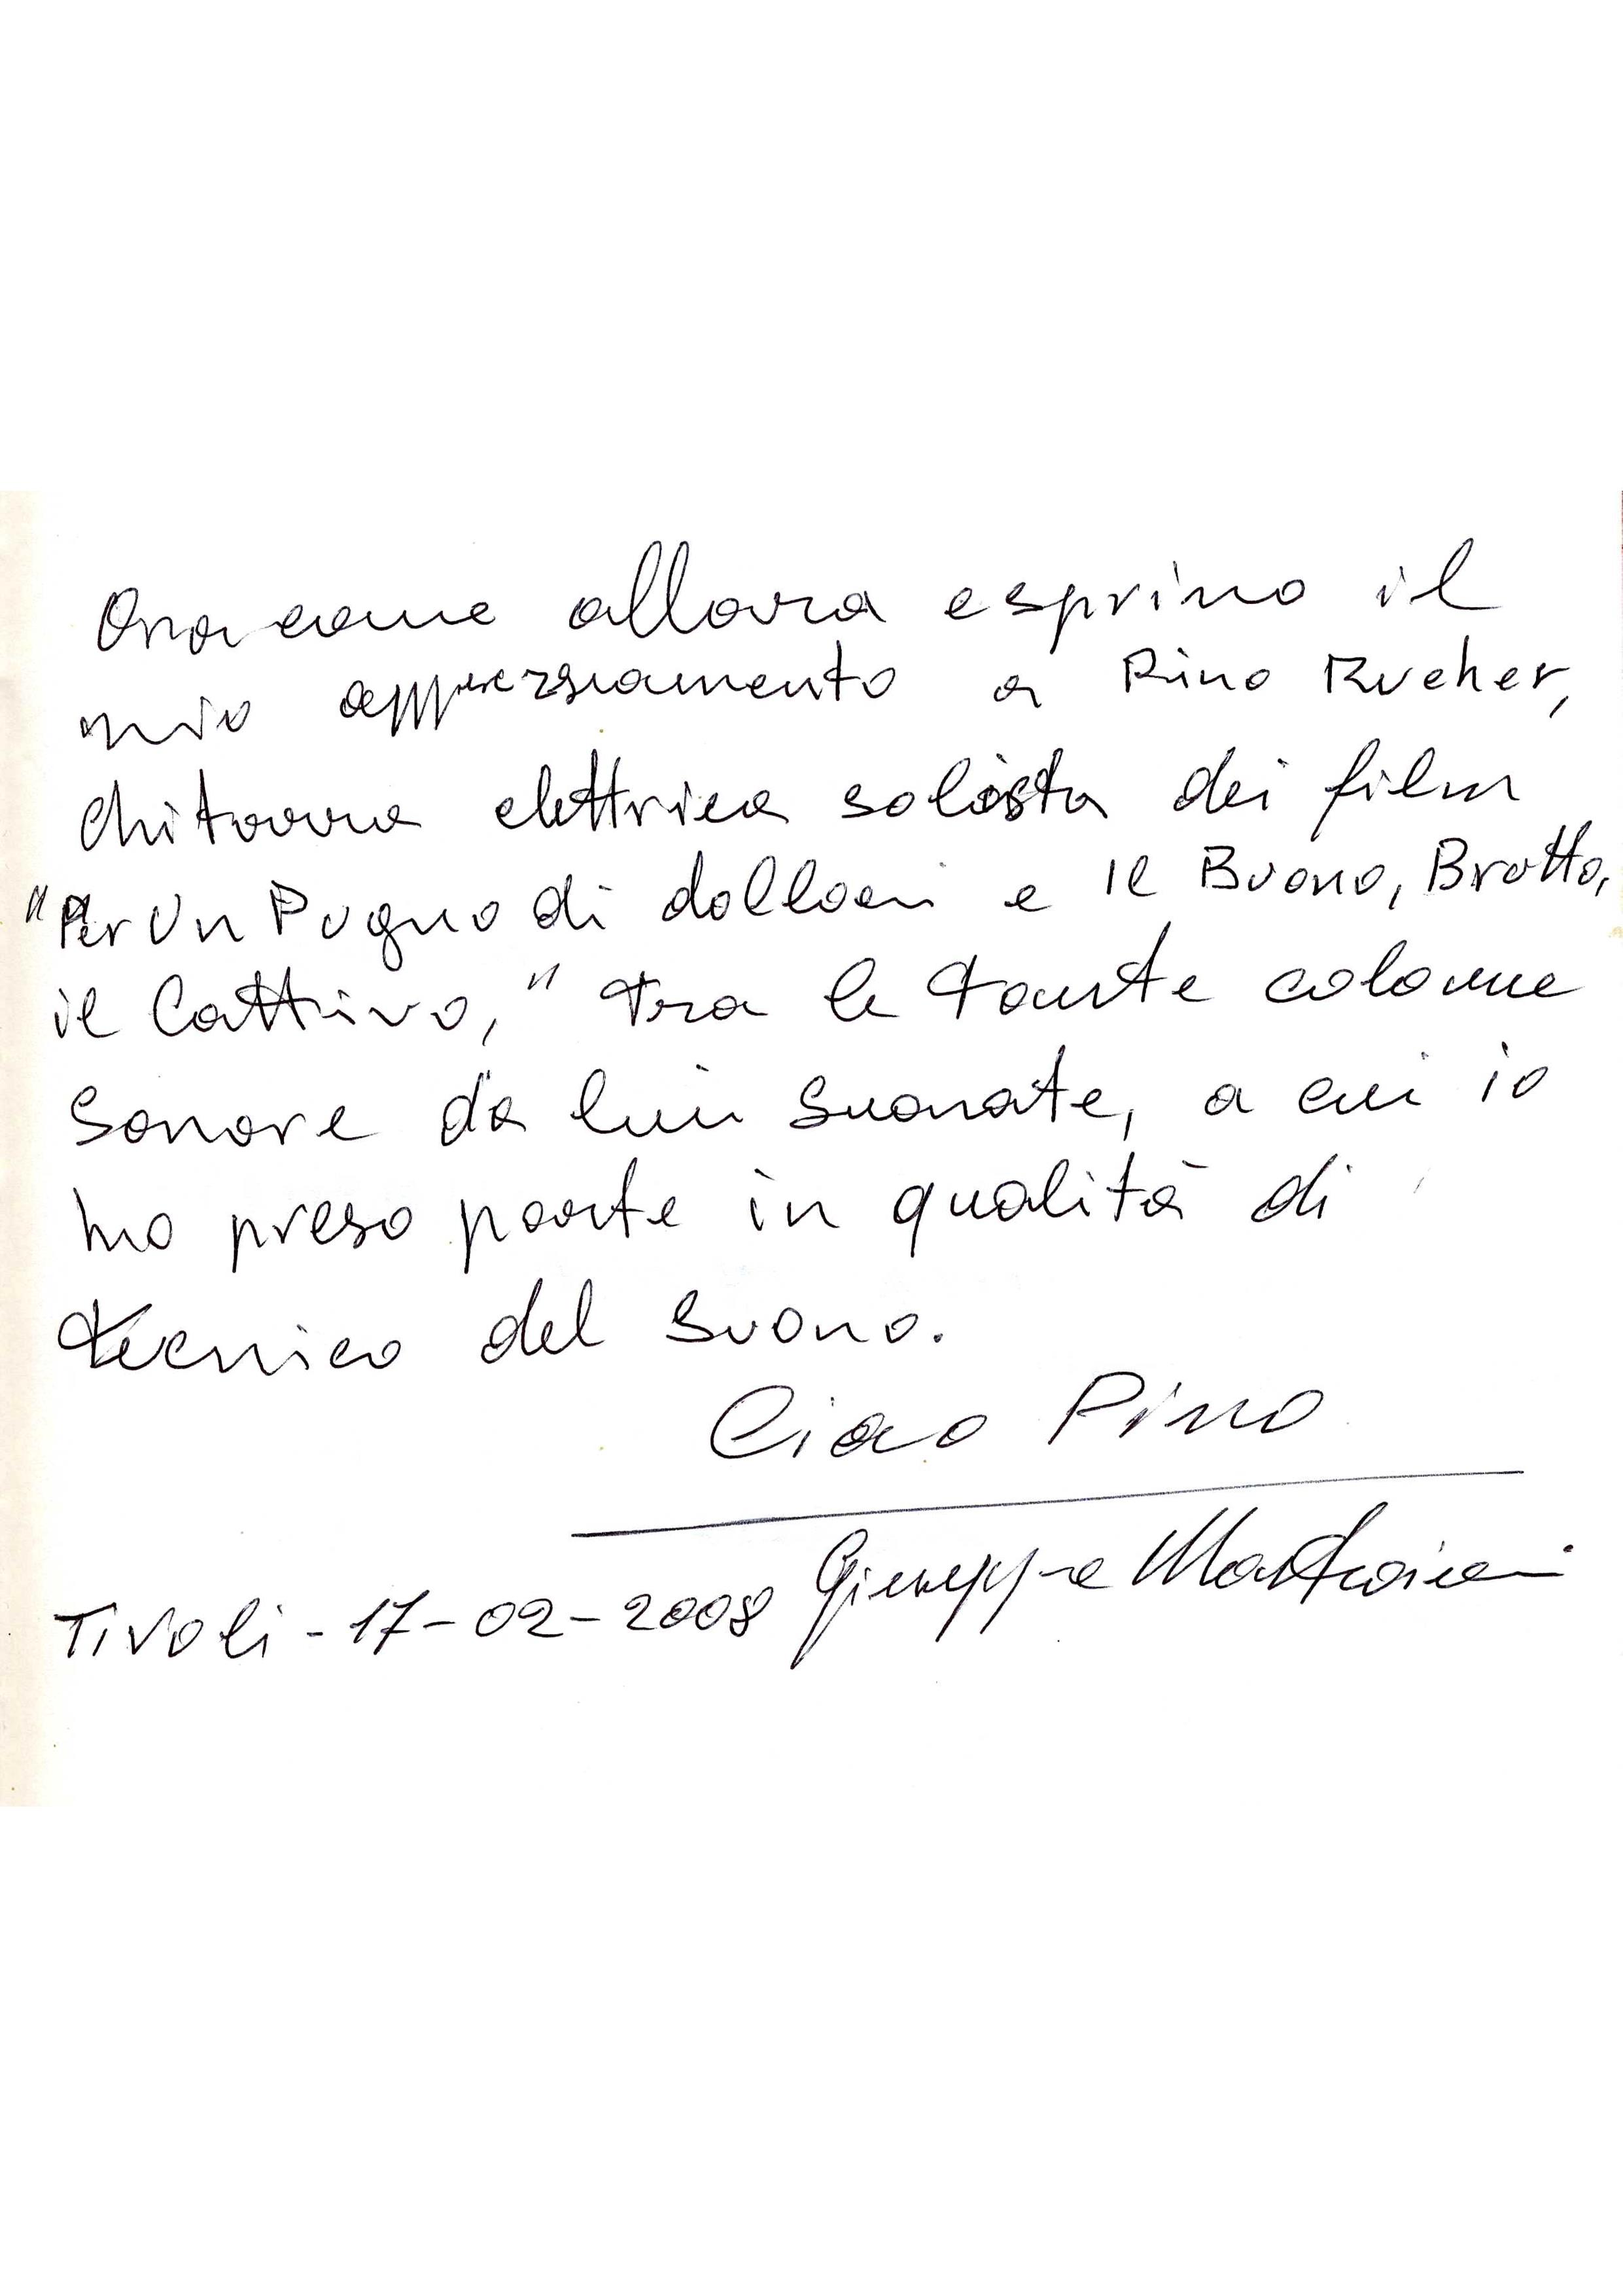 Ora come allora esprimo il
mio apprezzamento a Pino Rucher,
chitarra elettrica solista dei film
"Per Un Pugno di dollari e Il Buono, Brutto,
il Cattivo," tra le tante colonne
sonore da lui suonate, a cui io
ho preso parte in qualità di
tecnico del suono.
Ciao Pino
Giuseppe Mastroianni
Tivoli - 17-02-2008